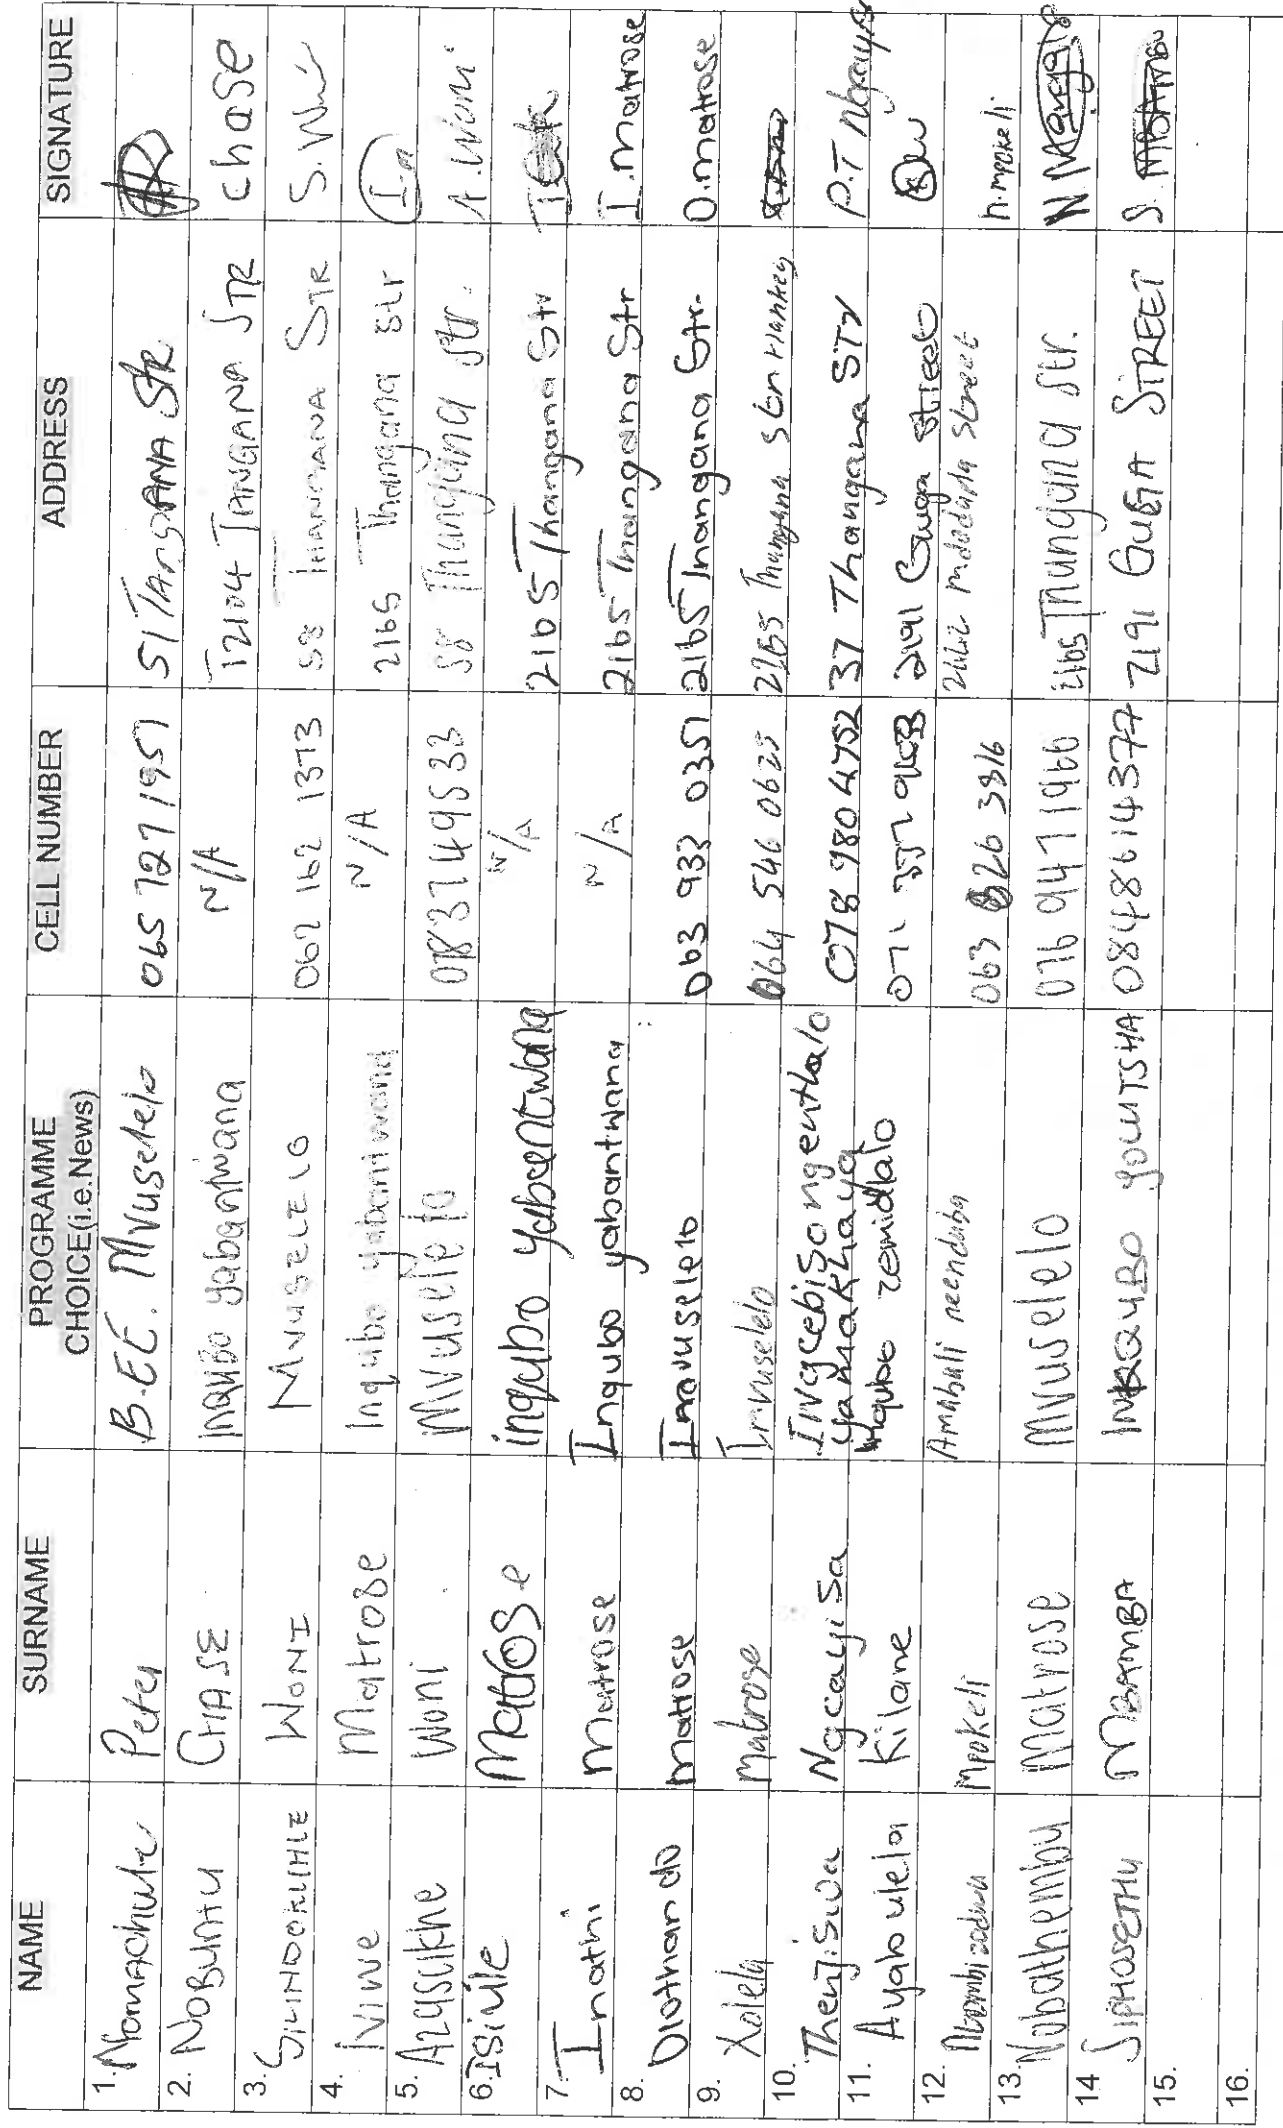 NAME SURNAME PROGRAMME CHOICE(i.e.News) CELL NUMBER ADDRESS SIGNATURE
1. Peter B.EE. Mvuselelo 065 727 1951 51 TANGANA STR
2. NOBUNTU CHASE INQUBO yabantwana N/A 12104 TANGANA STR chase
3. SILINDOKUHLE WONI MVUSELELO 062 162 1373 58 THANGANA STR
4. Iviwe Matrose Inqubo yabantwana N/A 2165 Thangana str I.m
5. Woni Mvuselelo 0783749533 58 Thangana str. A.Woni
6. Isivile Matrose inqubo yabantwana N/A 2165 Thangana Str
7. Inathi Matrose Inqubo yabantwana N/A 2165 Thangana Str I.matrose
8. Olothando matrose Imvuselelo 063 933 0351 2165 Thangana Str. O.matrose
9. Xolela Matrose Imvuselelo 064 546 0625 Thangana
10. Thenjiswa Ngcayisa Ingcebisongenthalo yamakhaya 078 980 4752 37 Thangana STR P.T
11. Ayabulela Kilane Inqubo zemidlalo 071 2191 Guga street
12. Mpokeli Amabali neendaba 063 826 3816 street n.mpokeli
13. Nobathembu Matrose Mvuselelo 076 947 1966 2165 Thangana str.
14 SIPHOSETHU MBAMBA INQUBO yoluTSHA 0848614377 2191 GUGA STREET
15.
16.